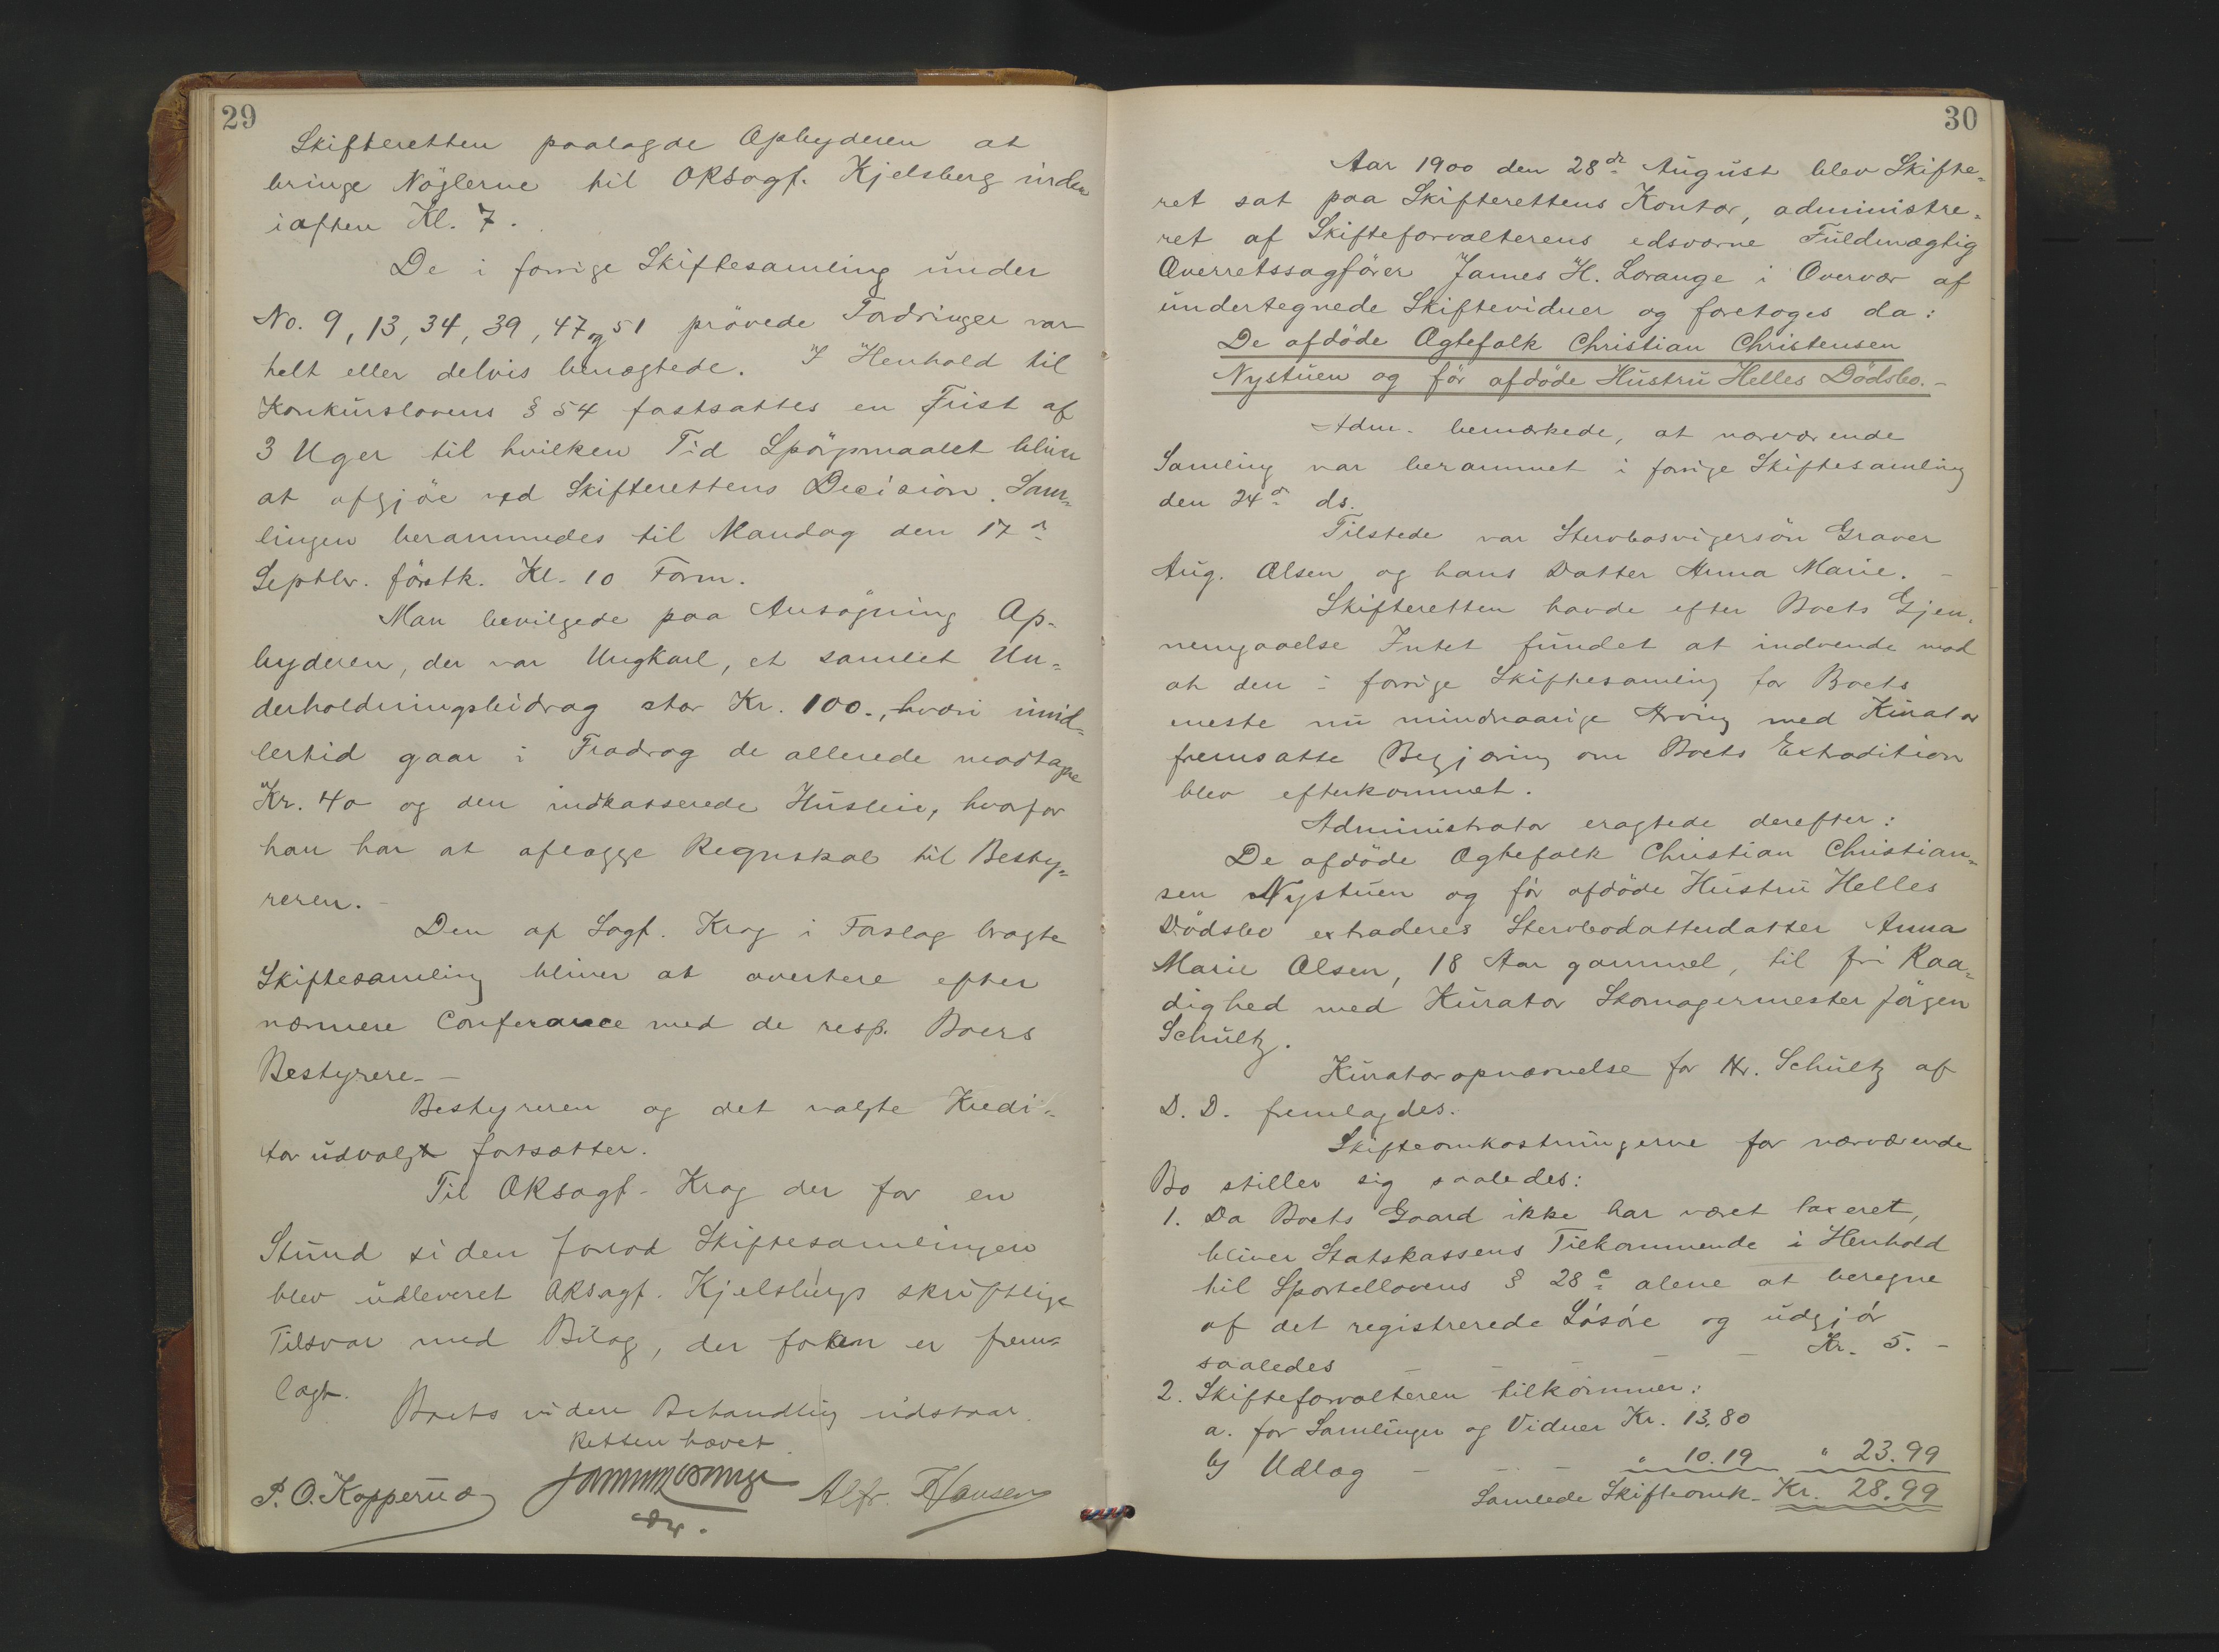 29
Skifteretten paalagde Opbyderen at
bringe Nøglerne til ORSagf. Kjelsberg inden
iaften Kl. 7.
De i forrige Skiftesamling under
No. 9, 13, 34, 39, 47 og 51 prøvede Fordringer var
helt eller delvis benægtede. I Henhold til
Konkurslovens § 54 fastsattes en Frist af
3 Uger til hvilken Tid Spørgsmaalet bliver
at afgjøre ved Skifterettens Decision. Sam=
lingen berammedes til Mandag den 17de
Septbr. førstk. Kl. 10 Form.
Man bevilgede paa Ansøgning Op-
byderen, der var Ungkarl, et samlet Un=
derholdningsbidrag stor Kr. 100.-, hvori imid=
lertid gaar i Fradrag de allerede modtagne
Kr. 40 og den indkasserede Husleie, hvorfor
han har at aflægge Regnskab til Besty=
reren. -
Den af Sagf. Krag i Forslag bragte
Skiftesamling bliver at avertere efter
nærmere Conferance med de resp. Boers
Bestyrere. -
Bestyreren og det valgte Kredi=
torudvalgt fortsætter.
Til ORsagf. Krag der for en
Stund siden forlod Skiftesamlingen
blev udleveret ORSagf. Kjelsbergs skriftlige
Tilsvar med Bilag, der forken er frem=
lagt.
Boets videre Behandling udstaar.
Retten hævet.
P. O. Kopperud
Alfr. Hansen
30
Aar 1900 den 28de August blev Skifte=
ret sat paa Skifterettens Kontor, administre=
ret af Skifteforvalterens edsvorne Fuldmægtig
Overretssagfører James H. Lorange i Overvær af
undertegnede Skiftevidner og foretoges da:
De afdøde Ægtefolk Christian Christensen
Nystuen og før afdøde Hustru Helles Dødsbo. -
Adm. bemærkede, at nærværende
Samling var berammet i forrige Skiftesamling
den 24de ds.
Tilstede var Stervbosvigersøn Graver
Aug. Olsen og hans Datter Anna Marie. -
Skifteretten havde efter Boets Gjen=
nemgaaelse Intet fundet at indvende mod
at den i forrige Skiftesamling for Boets
eneste nu mindreaarige Arving med Kurator
fremsatte Begjæring om Boets Extradition
blev efterkommet.
Administrator eragtede derefter:
De afdøde Ægtefolk Christian Christian=
sen Nystuen og før afdøde Hustru Helles
Dødsbo extraderes Stervbodatterdatter Anna
Marie Olsen, 18 Aar gammel, til fri Raa=
dighed med Kurator Skomagermester Jørgen
Schultz.
Kuratoropnævnelse for Hr. Schultz af
D. D. fremlagdes.
Skifteomkostningerne for nærværende
Bo stiller sig saaledes:
1. Da Boets Gaard ikke har været taxeret,
bliver Statskassens Tilkommende i Henhold
til Sportellovens § 28 c alene at beregne
af det registrerede Løsøre og udgjør
saaledes - - - - - Kr. 5. -
2. Skifteforvalteren tilkommer:
a. for Samlinger og Vidner Kr. 13.80
b) Udlæg - - - " 10.19 " 23.99
Samlede Skifteomk. Kr. 28.99